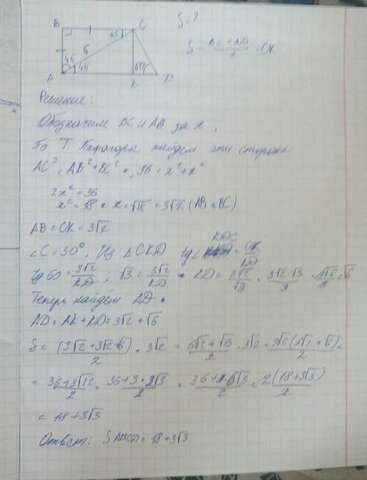 B C S - ?
45
6 S = (BC + AD)/2 · CK
45
45 60
A K D
Решение:
Обозначим BC и AB за x.
По Т. Пифагора найдем эти стороны
AC² = AB² + BC² = 36 = x² + x²
2x² = 36
x² = 18 x = √18 = 3√2 (AB и BC)
AB = CK = 3√2
∠C = 30°, Из △CKD tg
tg 60 = 3√2/KD, √3 = 3√2/KD KD = 3√2/√3 = 3√2·√3/3 = √6
Теперь найдём AD
AD = AK + KD = 3√2 + √6
S = (3√2 + 3√2 + √6)/2 · 3√2 = (6√2 + √6)/2 · 3√2 = 3√2(6√2 + √6)/2 =
= (36 + 3√12)/2 = (36 + 3·2√3)/2 = (36 + 6√3)/2 = 2(18 + 3√3)/2
= 18 + 3√3
Ответ: S ABCD = 18 + 3√3